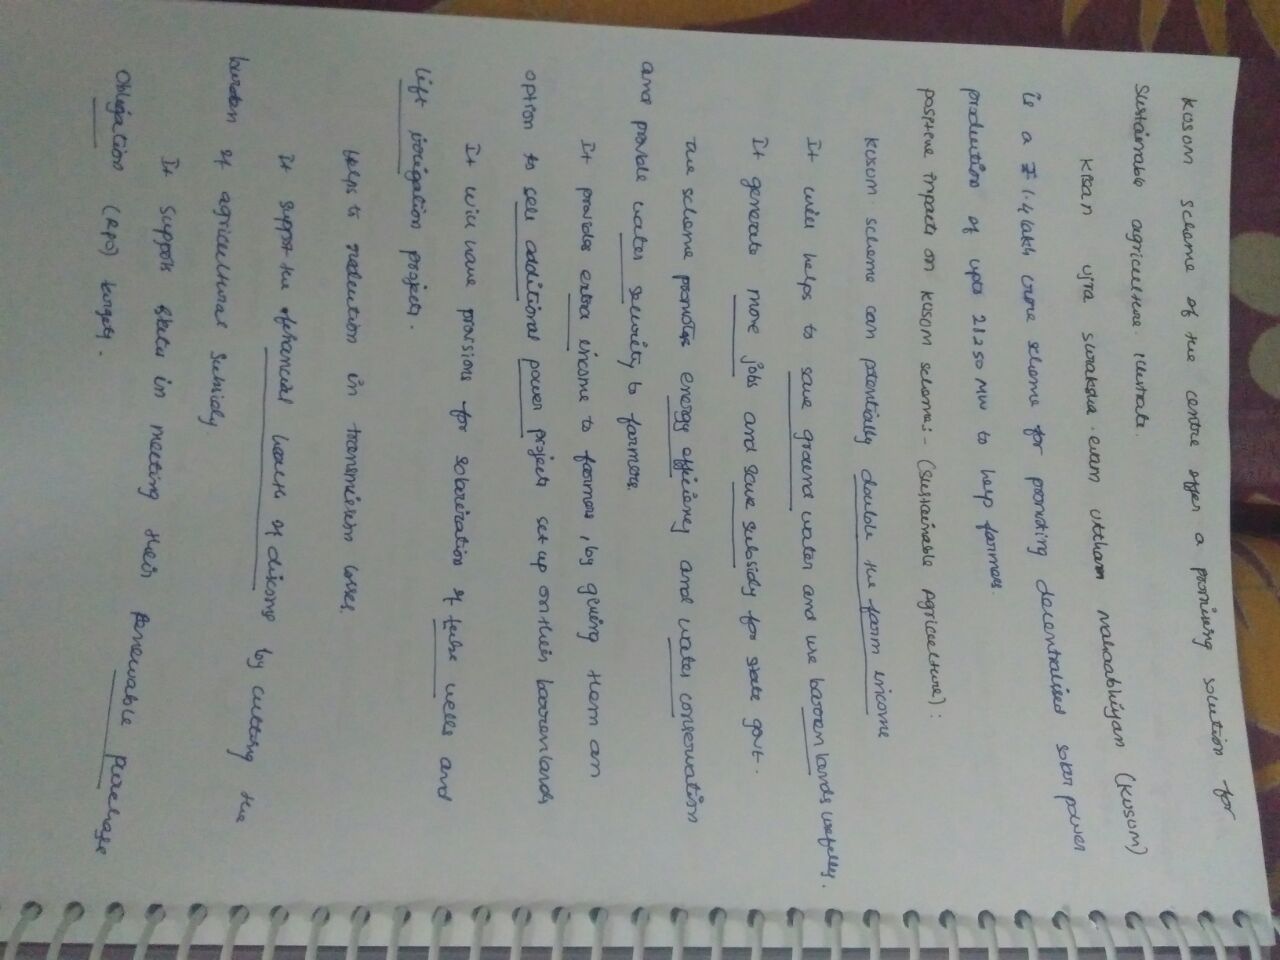 KUSUM scheme of the centre offers a promising solution for
sustainable agriculture. illustrate.
Kisan Ujra suraksha evam utthan mahaabhiyan (KUSUM)
is a ₹ 1.4 lakh crore scheme for promoting decentralised solar power
production of upto 28250 MW to help farmers.
positive impacts on KUSUM scheme:- (sustainable Agriculture):
KUSUM scheme can potentially double the farm income
It will helps to save ground water and use barren lands usefully.
It generate more jobs and save subsidy for state govt.
The scheme promotes energy efficiency and water conservation
and provide water security to farmers.
It provides extra income to farmers, by giving them an
option to sell additional power projects set up on their barren lands
It will have provisions for solarization of tube wells and
lift irrigation projects.
helps to reduction in transmission losses
It support the financial health of discoms by cutting the
burden of agricultural subsidy.
It support states in meeting their Renewable Purchase
Obligation (RPO) targets.